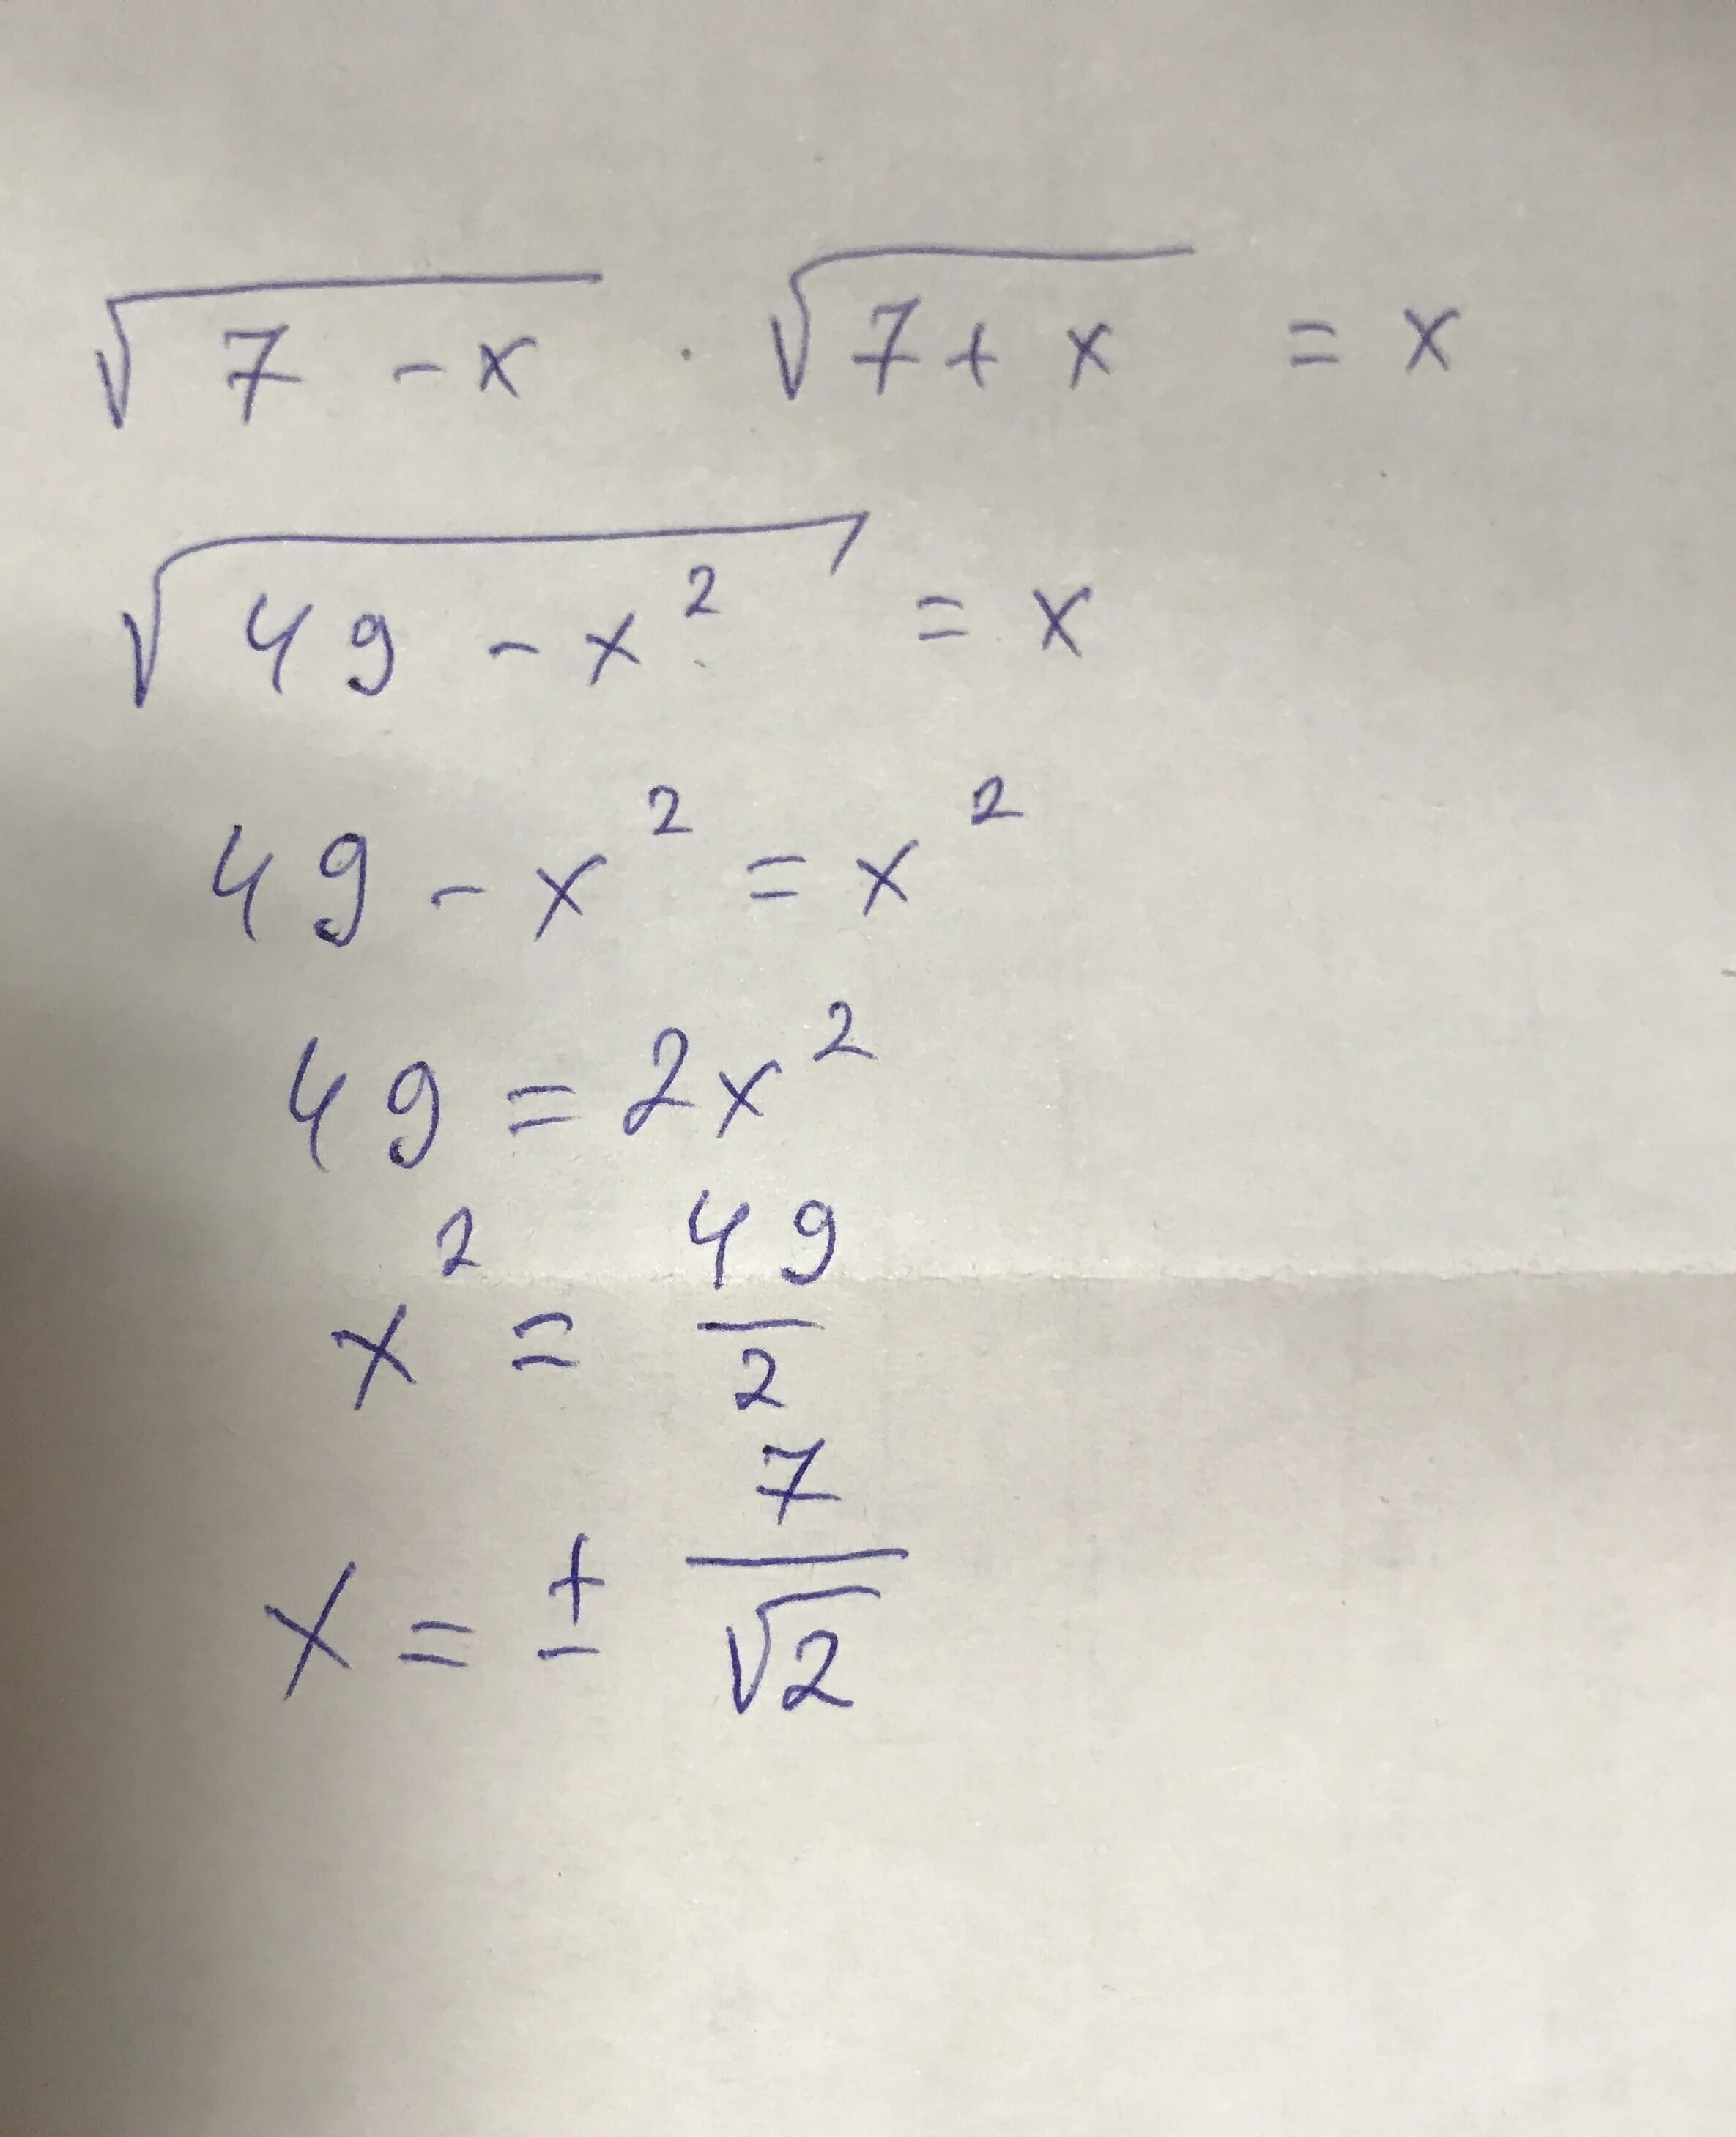 √(7 - x) · √(7 + x) = x
√(49 - x²) = x
49 - x² = x²
49 = 2x²
x² = 49/2
x = ± 7/√2